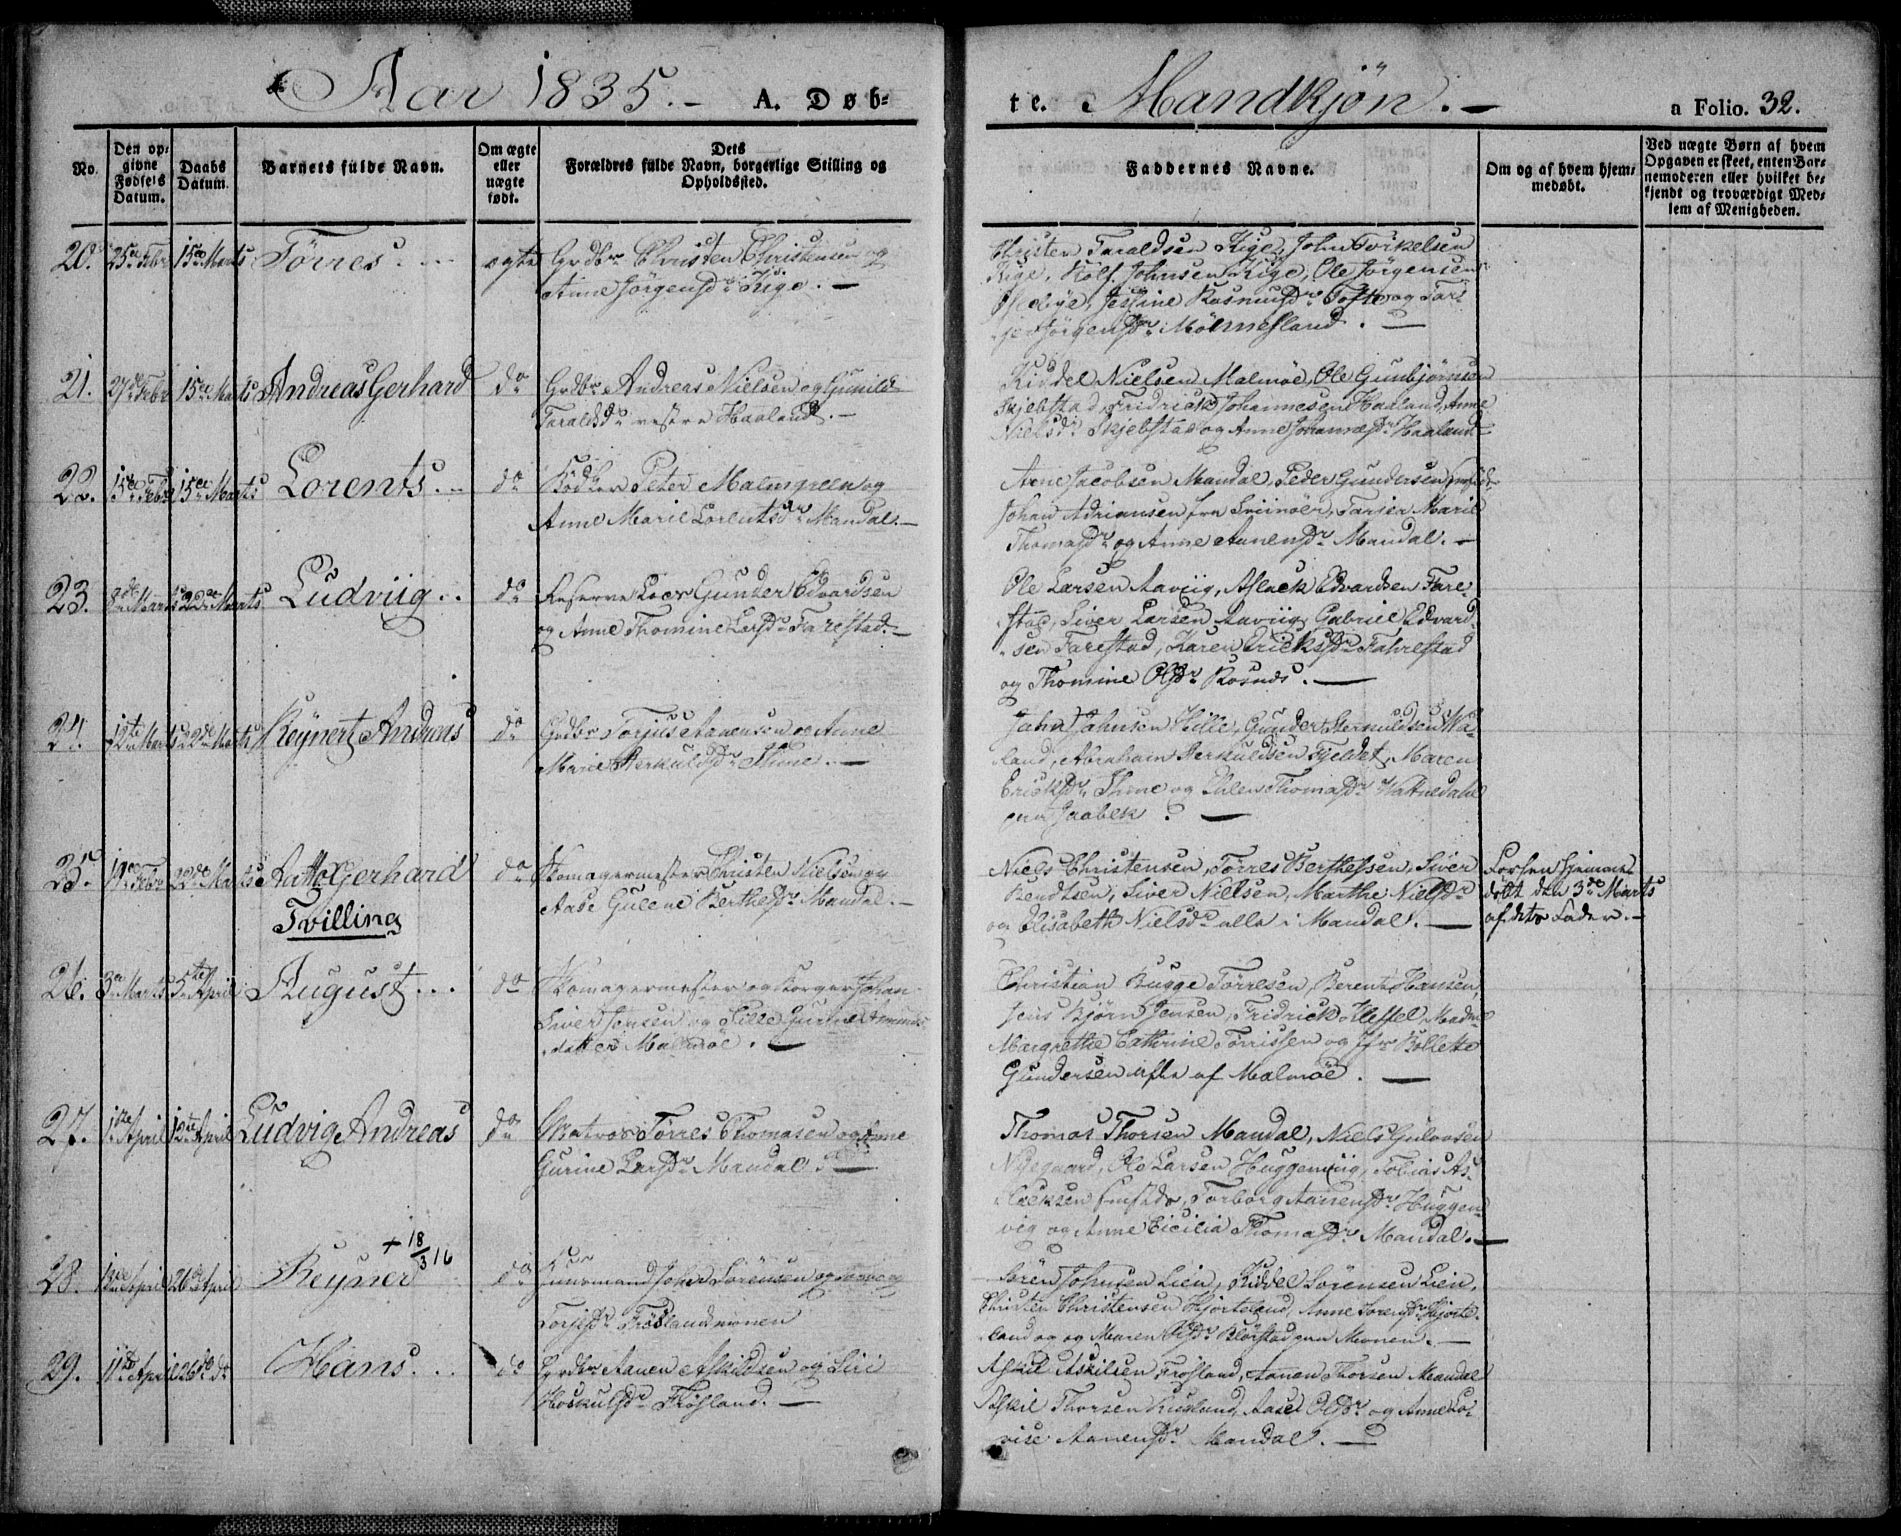 Aar 1835. - A. Døb-
No.
Den op-
givne
Fødsels
Datum.
Daabs
Datum.
Barnets fulde Navn.
Om ægte
eller
uægte
født.
Dets
Forældres fulde Navn, borgerlige Stilling og
Opholdssted.
20. 25de Febr 15de Marts Törres ægte Grdbr Christen Christensen og
Anne Jörgensdr Kige. -
21. 27de Febr 15de Marts Andreas Gerhard do Grdbr Andreas Nielsen og Gunild
Taraldsdr vestre Haaland. -
22. 15de Febr 15de Marts Lorents. do Peter Malmgreen og
Anne Marie Lorentsdr Mandal. -
23. 8de Marts 22de Marts Ludviig do Reserve Lods Gunder Edvardsen
og Anne Thomine Larsdr Farestad. -
24. 12te Marts 22de Marts Reynert Andreas do Grdbr Torjus Aanensen og Anne
Marie Herkulsdr -
25. Febr 22de Marts Gerhard do Skomagermester Christen Nielsen og
Tvilling
Aase Gulene Berthelsdr Mandal. -
26. 3de Marts 5te April August do Skomagermester og Borger Johan
Siver Jensen og Gurine Amunds
datter Malmöe. -
27. 1te April 12te April Ludvig Andreas do Matros Törres Thomasen og Anne
Gurine Larsdr Mandal. -
+ 18/3 16
28. April 26de April Reyner do Huusmand John Sörensen og
Torjesdr Fröslandmonen
29. 11te April 26de do Hans do Grdbr Aanen Askildsen og Siri
Hoskulsdr Frösland. -
te. Mandkjön. - a Folio. 32.
Faddernes Navne.
Om og af hvem hjem-
medøbt.
Ved uægte Børn af hvem
Opgaven er skeet, enten Bar-
nemoderen eller hvilket be-
kjendt og troværdigt Med-
lem af Menigheden.
Christen Taraldsen Kige, John Torkelsen
Kige, Rolf Johnsen Kige, Ole Jörgensen
Jessine Rasmusdr Tofte og Tar-
Jörgensdr Mölmesland. -
Kiddel Nielsen Malmöe, Ole Gunbjörnsen
Skjebstad, Fridrick Johannesen Haaland, Anne
Nielsdr Skjebstad og Anne Johannesdr Haaland
Arne Jacobsen Mandal, Peder Gundersen
Johan Adriansen fra Sviinöer, Marie
Thomasdr og Anne Aanensdr Mandal. -
Ole Larsen Aaviig, Aslack Edvardsen Fare-
stad, Siver Larsen Aaviig, Gabriel Edvard-
sen Farestad, Karen Ericksdr Fahrestad
og Thomine Olsdr Rosnæs. -
Jahn Jahnsen Hille, Gunder Herculdsen
land, Abraham Herkuldsen Fjeldet, Maren
Ericksdr og Thomasdr Wattnedahl
-
Niels Christensen, Törres Berthelsen, Siver
Bendtsen, Siver Nielsen, Marthe Nielsdr
og Elisabeth Nielsdr alle i Mandal. -
hjemme-
döbt den 3de Marts
af dets Fader. -
Christian Bugge Törresen, Berent Hansen,
Jens Björn Jensen, Fridrick
Margrethe Cathrine Törrissen og Jfr Bolette
Gundersen af Malmöe. -
Thomas Thorsen Mandal, Niels Gulovsen
Nyegaard, Ole Larsen Huggenviig, Tobias As-
lacksen Torborg Aanensdr Huggen-
vig og Anne Cicilia Thomasdr Mandal. -
Sören Johnsen Lien, Kiddel Sörensen Lien,
Christen Christensen Hjorteland, Anne Sörensdr Hjorte-
land og og Maren Olsdr Monen. -
Askil Askilsen Frösland, Aanen Thorsen Mandal
Askil Thorsen Aase Olsdr og Anne Lo-
vise Aanensdr Mandal. -